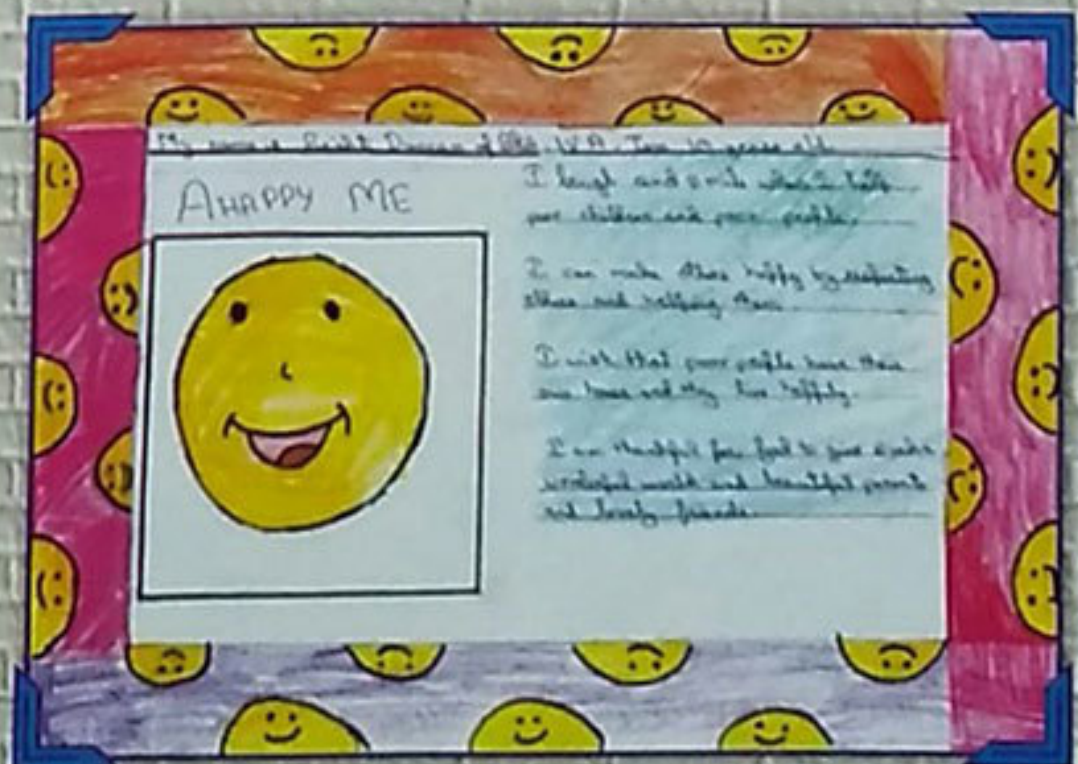 My name is of IV A. I am 10 years old
A HAPPY ME
I laugh and smile when I help
poor children and poor people.
I can make others happy by respecting
others and helping them.
I wish that poor people have their
own house and they live happily.
I am thankful for to give
wonderful world and beautiful parents
and lovely friends.